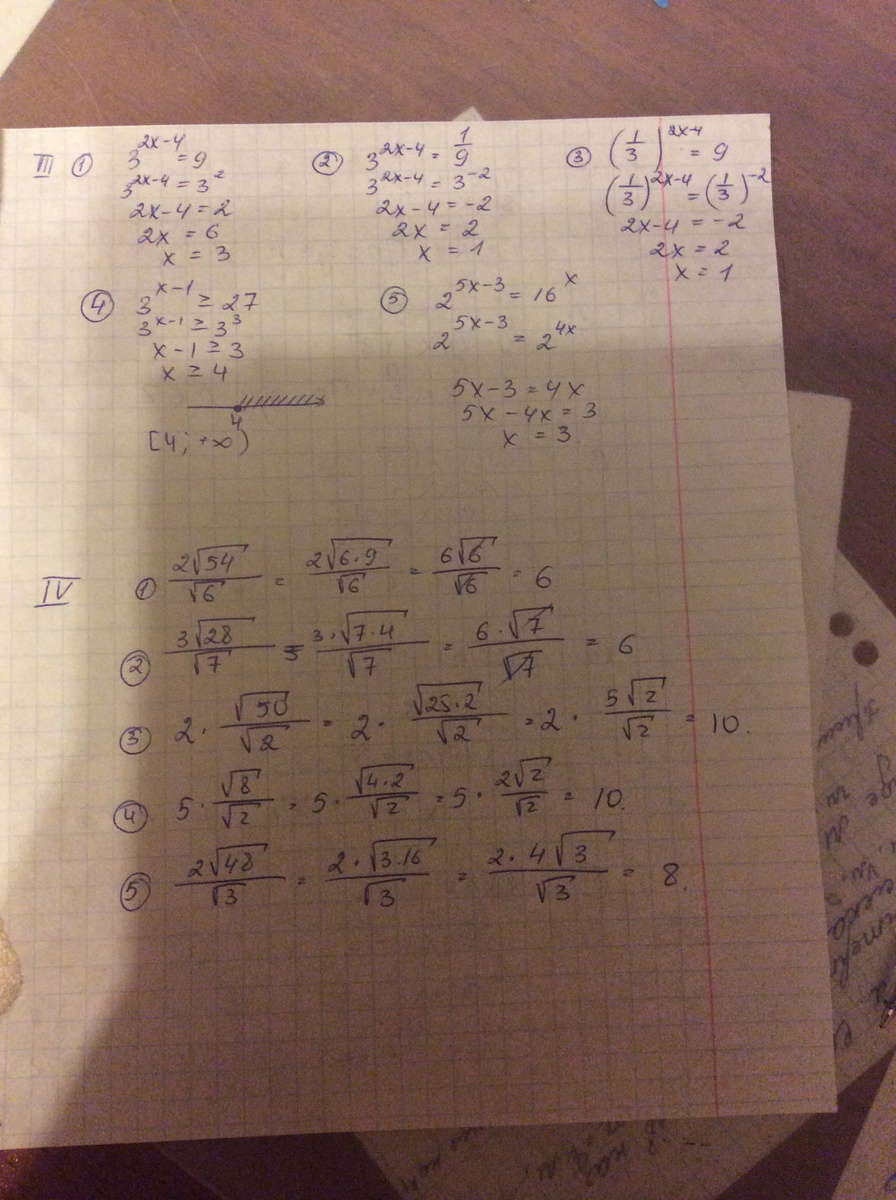 III ① 3^(2x-4) = 9
3^(2x-4) = 3^2
2x-4 = 2
2x = 6
x = 3
② 3^(2x-4) = 1/9
3^(2x-4) = 3^(-2)
2x-4 = -2
2x = 2
x = 1
③ (1/3)^(2x-4) = 9
(1/3)^(2x-4) = (1/3)^(-2)
2x-4 = -2
2x = 2
x = 1
④ 3^(x-1) ≥ 27
3^(x-1) ≥ 3^3
x-1 ≥ 3
x ≥ 4
4
[4; +∞)
⑤ 2^(5x-3) = 16^x
2^(5x-3) = 2^(4x)
5x-3 = 4x
5x-4x = 3
x = 3.
IV ① 2√54/√6 = 2√(6·9)/√6 = 6√6/√6 = 6
② 3√28/√7 = 3·√(7·4)/√7 = 6·√7/√7 = 6
③ 2·√50/√2 = 2·√(25·2)/√2 = 2·5√2/√2 = 10.
④ 5·√8/√2 = 5·√(4·2)/√2 = 5·2√2/√2 = 10.
⑤ 2√48/√3 = 2·√(3·16)/√3 = 2·4√3/√3 = 8.